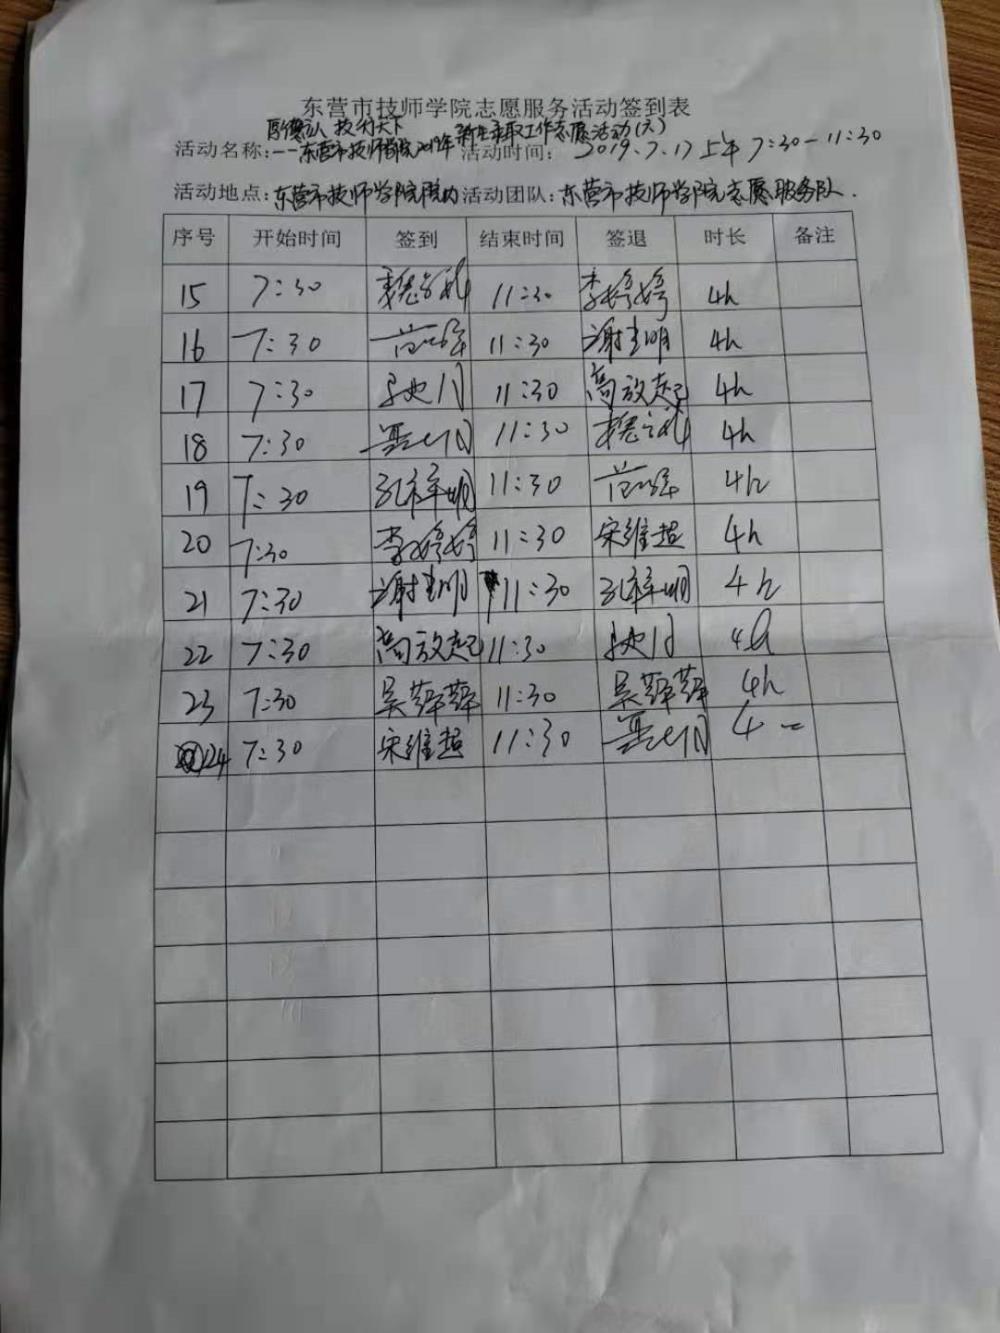 东营市技师学院志愿服务活动签到表
厚德 技行天下
活动名称:——东营市技师学院2019年新生录取工作志愿活动(六) 活动时间: 2019.7.17上午 7:30-11:30
活动地点:东营市技师学院院内 活动团队:东营市技师学院志愿服务队.
序号 开始时间 签到 结束时间 签退 时长 备注
15 7:30 11:30 李婷婷 4h
16 7:30 11:30 谢 明 4h
17 7:30 11:30 高放起 4h
18 7:30 11:30 4h
19 7:30 孔祥明 11:30 4h
20 7:30 李婷婷 11:30 宋维超 4h
21 7:30 谢 明 11:30 孔祥明 4h
22 7:30 高放起 11:30 4h
23 7:30 吴萍萍 11:30 吴萍萍 4h
24 7:30 宋维超 11:30 4